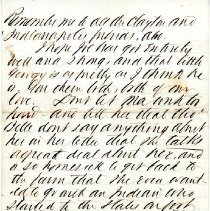 Remember me to all the Clayton and
Indianapolis friends, also.
I hope Joe has got entirely
well and strong, and that little
George is as pretty as I think he
is. You them both, both of
love. Don't let ma and pa
know and tell her that tho
Belle don't say anything about
her in her letter that she talks
a great deal about her, and
is so homesick to get back to
the farm that she even want-
ed to go with an Indian who
started to the States on foot